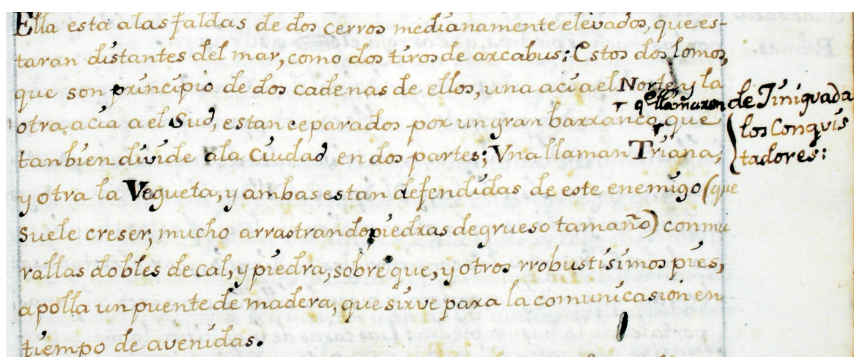 Ella está a las faldas de dos cerros medianamente elevados, que es-
taran distantes del mar, como dos tiros de arcabus: Estos dos lomos,
que son principio de dos cadenas de ellos, una acia el Norte, y la
otra, acia a el Sud, estan ceparados por un gran barranco, que
q.e llamaron de Tiniguada
los Conquis
tadores:
tanbien divide a la Ciudad en dos partes; Vna llaman Triana,
y otra la Vegueta, y ambas estan defendidas de este enemigo (que
suele creser, mucho arrastrando piedras de grueso tamaño) con mu
rallas dobles de cal, y piedra, sobre que, y otros rrobustisimos pies,
apolla un puente de madera, que sirve para la comunicasión en
tiempo de avenidas.